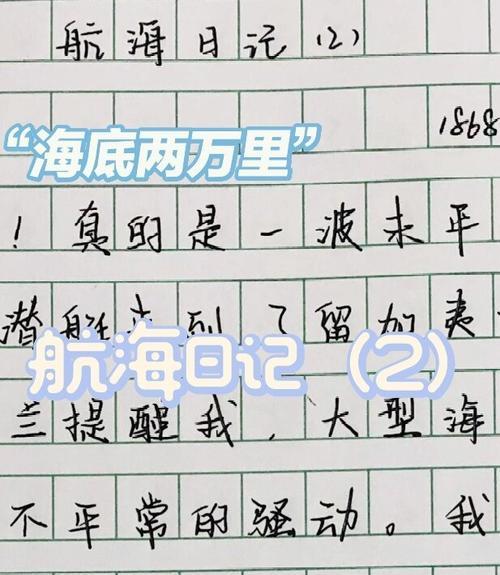 航海日记(2)
1868
“海底两万里”
！真的是一波未平
潜艇来到了留加夷
航海日记（2）
兰提醒我，大型海
不平常的骚动。我